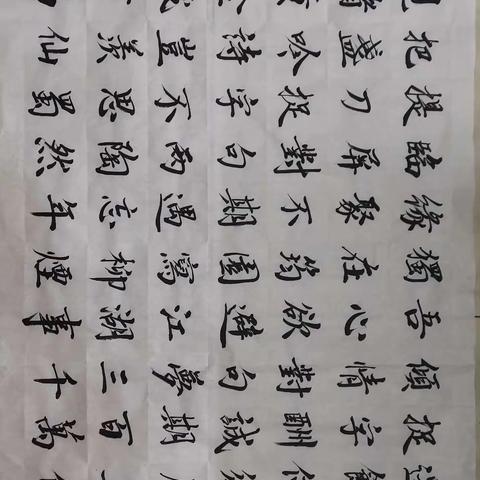 捉字酬誠期百萬
傾情對句夢三千
吾心欲避江湖事
獨在筠園寫柳煙
緣聚不期遇忘年
臨屏對句兩陶然
提刀捉字不思蜀
把盞吟詩豈羨仙